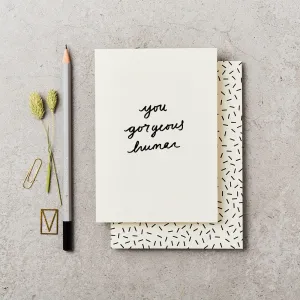 you
gorgeous
human